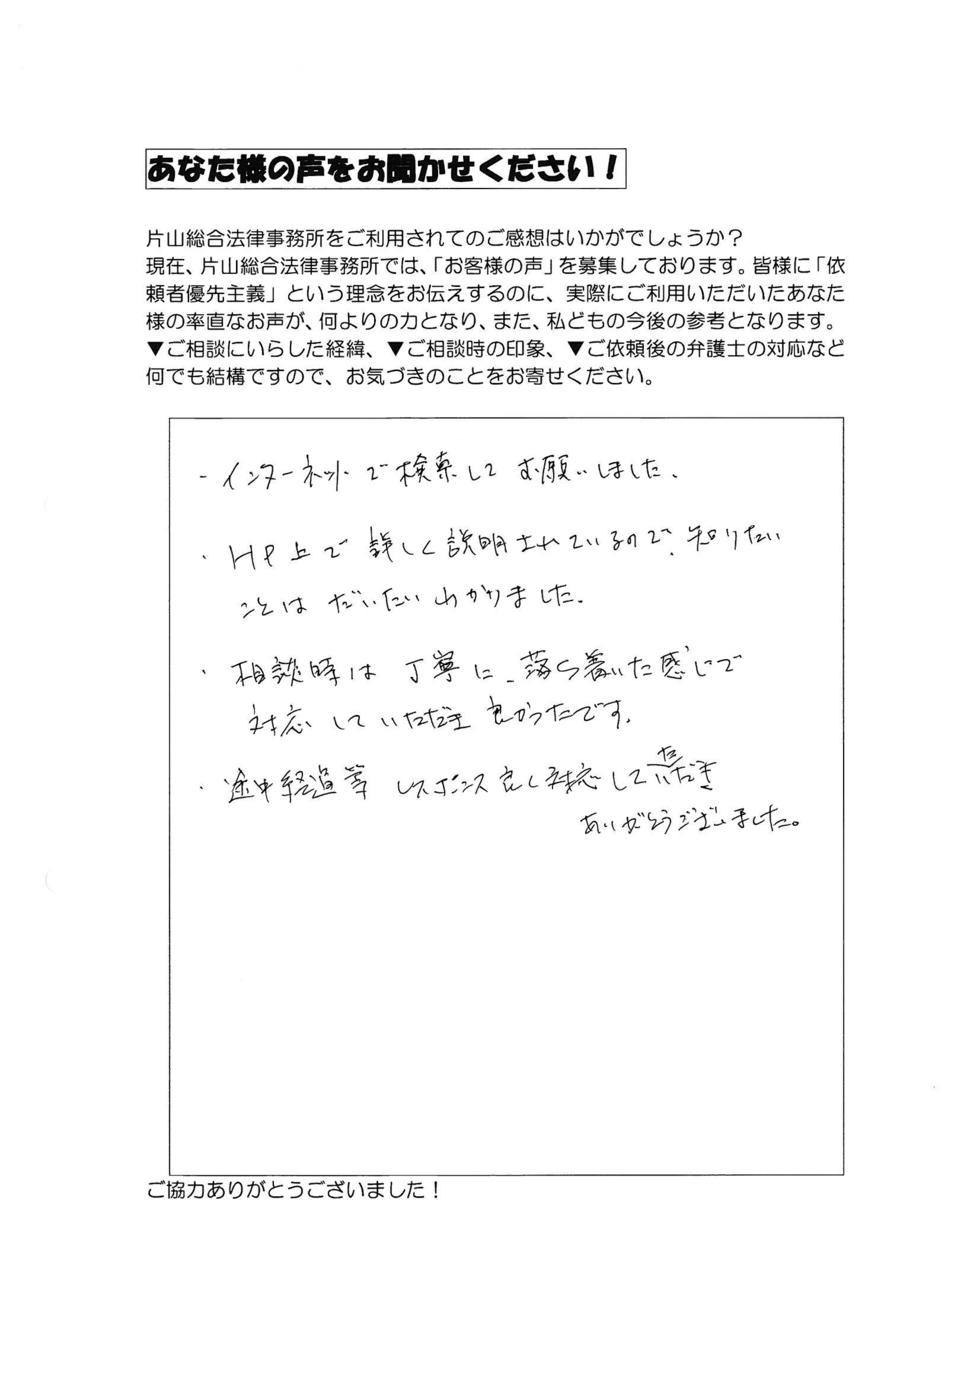 あなた様の声をお聞かせください！
片山総合法律事務所をご利用されてのご感想はいかがでしょうか？
現在、片山総合法律事務所では、「お客様の声」を募集しております。皆様に「依
頼者優先主義」という理念をお伝えするのに、実際にご利用いただいたあなた
様の率直なお声が、何よりの力となり、また、私どもの今後の参考となります。
▼ご相談にいらした経緯、▼ご相談時の印象、▼ご依頼後の弁護士の対応など
何でも結構ですので、お気づきのことをお寄せください。
・インターネットで検索してお願いしました。
・HP上で詳しく説明されているので、知りたい
ことはだいたいわかりました。
・相談時は丁寧に、落ち着いた感じで
対応していただき良かったです。
・途中経過等 レスポンス良く対応して いただき
ありがとうございました。
ご協力ありがとうございました！